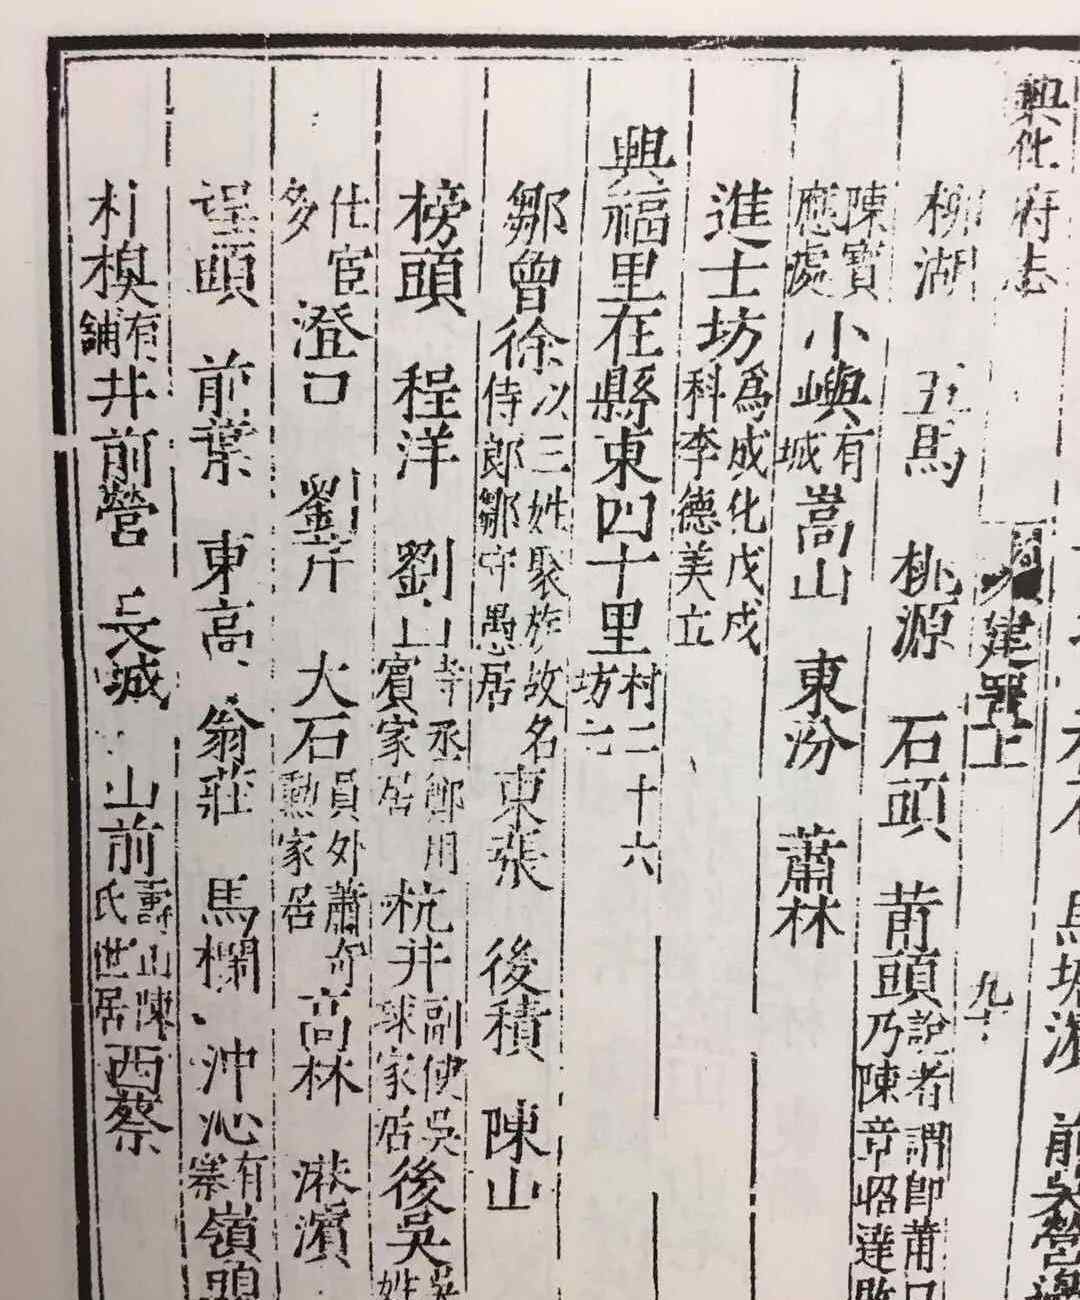 馬 前
興化府志 建置上 九十
柳湖 五馬 桃源 石頭 莆頭 説者謂即莆口 乃陳章昭達
陳寶應處 小嶼 有城 嵩山 東汾 蕭林
進士坊 爲成化戊戌科李德美立
興福里在縣東四十里 村二十六 坊一
鄒曾徐 次三姓聚族故名 侍郎鄒守愚居 東張 後積 陳山
榜頭 程洋 劉山 寺丞鄭用賓家居 杭井 副使吳球家居 後吳 吳姓
仕宦多 澄口 劉芹 大石 員外蕭奇勲家居 高林 淋濱
望頭 前葉 東高 翁莊 馬欄 沖沁 有寨 嶺頭
朴樉 有舖 井前營 長城 山前 壽山陳氏世居 西蔡